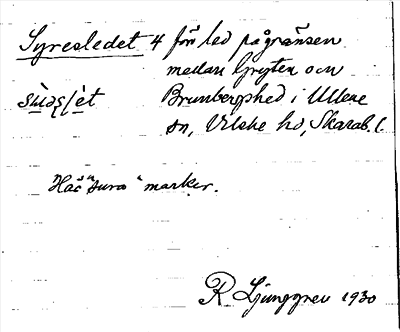 Syresledet 4 förr led på gränsen
mellan Gryten och
Brunbergshed i Ullene
sn, Vilske hd, Skarab. l.
Här "sura" marker.
R Ljunggren 1930